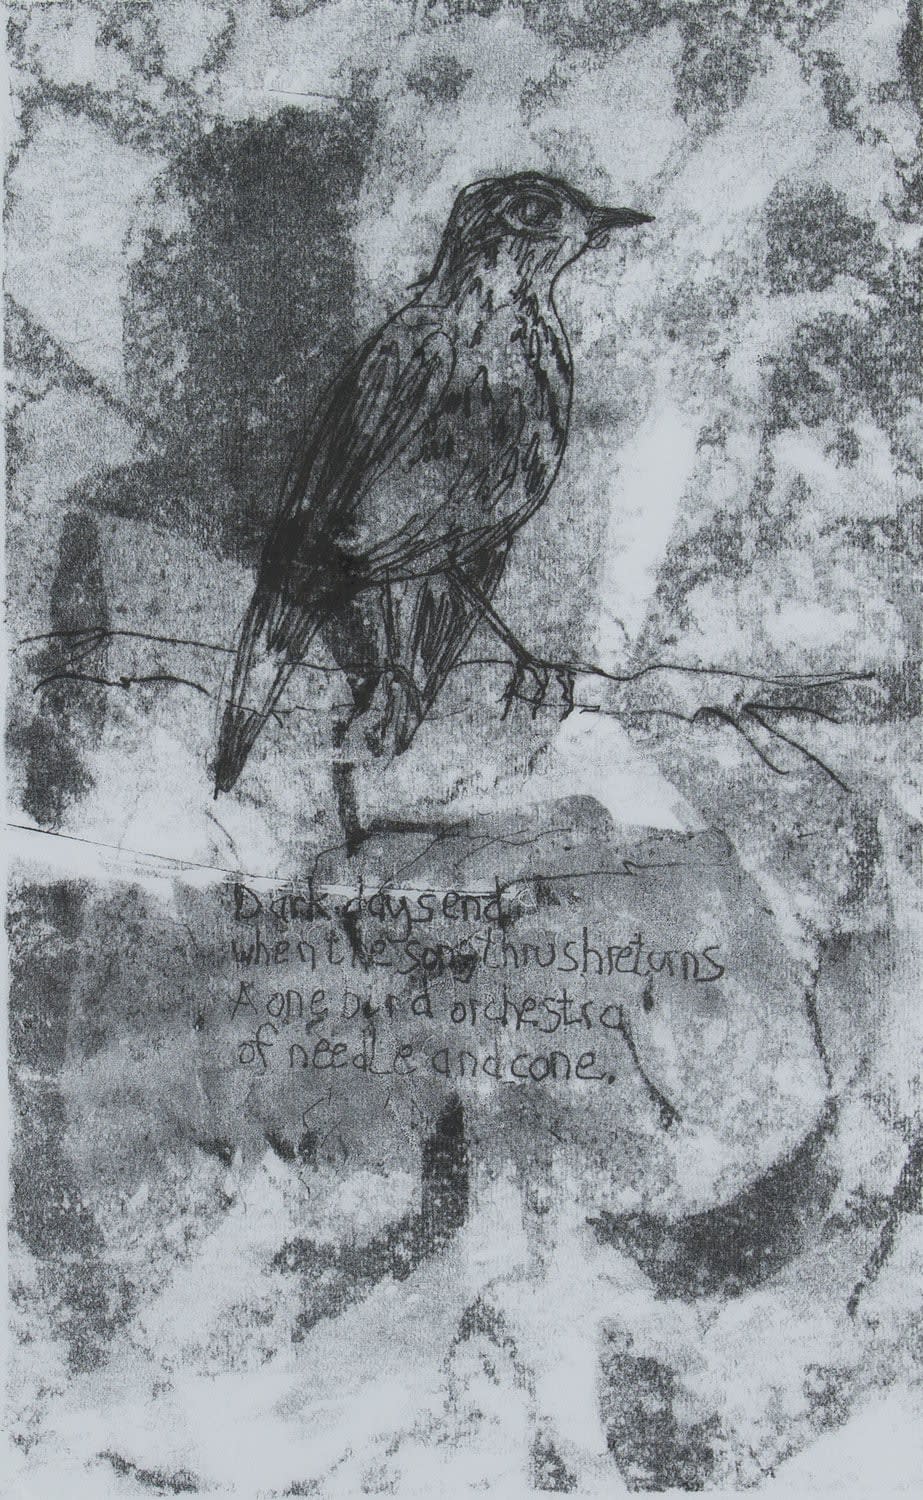 Dark days end
when the song thrush returns
A one bird orchestra
of needle and cone.